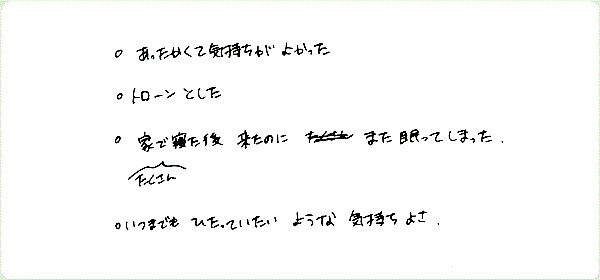 ○ あったかくて気持ちがよかった
○ トローンとした
○ 家で寝た後 来たのに たくさん また眠ってしまった.
たくさん
○ いつまでも ひたっていたい ような 気持ちよさ.